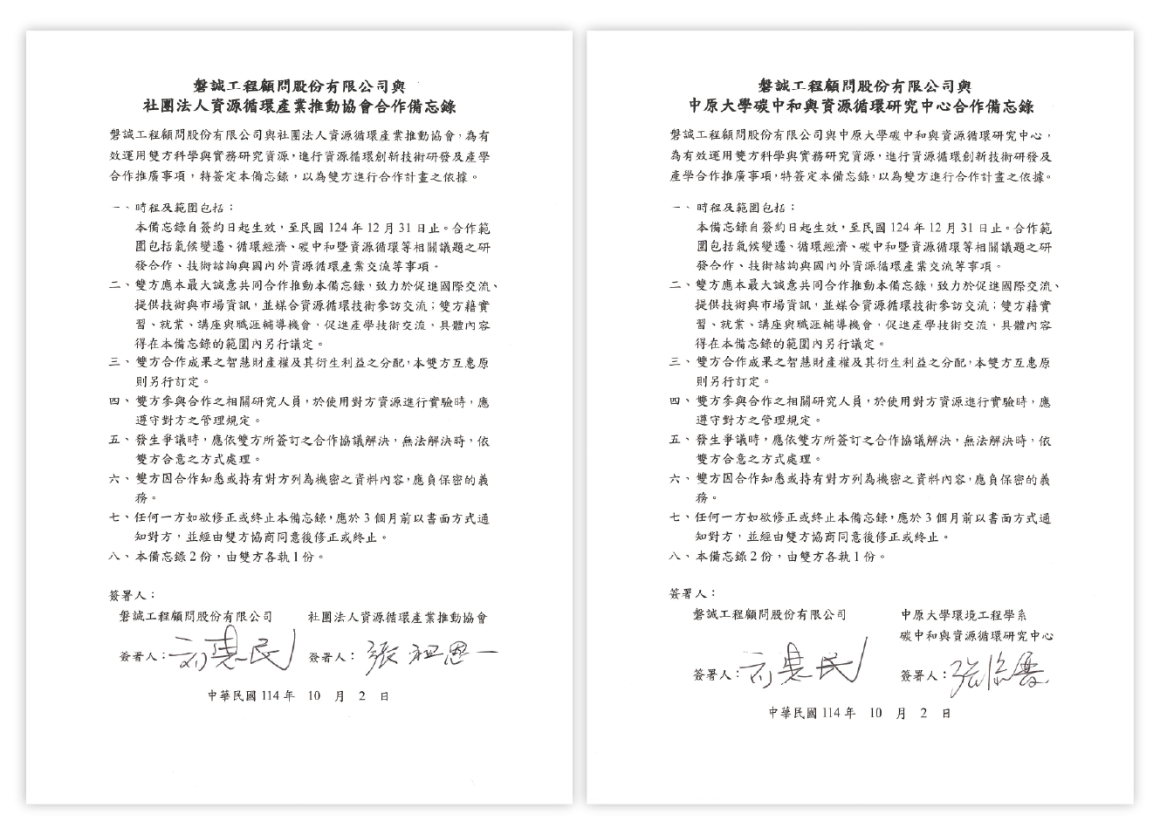 磐誠工程顧問股份有限公司與
社團法人資源循環產業推動協會合作備忘錄
磐誠工程顧問股份有限公司與社團法人資源循環產業推動協會，為有
效運用雙方科學與實務研究資源，進行資源循環創新技術研發及產學
合作推廣事項，特簽定本備忘錄，以為雙方進行合作計畫之依據。
一、時程及範圍包括：
本備忘錄自簽約日起生效，至民國 124 年 12 月 31 日止。合作範
圍包括氣候變遷、循環經濟、碳中和暨資源循環等相關議題之研
發合作、技術諮詢與國內外資源循環產業交流等事項。
二、雙方應本最大誠意共同合作推動本備忘錄，致力於促進國際交流、
提供技術與市場資訊，並媒合資源循環技術參訪交流；雙方藉實
習、就業、講座與職涯輔導機會，促進產學技術交流，具體內容
得在本備忘錄的範圍內另行議定。
三、雙方合作成果之智慧財產權及其衍生利益之分配，本雙方互惠原
則另行訂定。
四、雙方參與合作之相關研究人員，於使用對方資源進行實驗時，應
遵守對方之管理規定。
五、發生爭議時，應依雙方所簽訂之合作協議解決，無法解決時，依
雙方合意之方式處理。
六、雙方因合作知悉或持有對方列為機密之資料內容，應負保密的義
務。
七、任何一方如欲修正或終止本備忘錄，應於 3 個月前以書面方式通
知對方，並經由雙方協商同意後修正或終止。
八、本備忘錄 2 份，由雙方各執 1 份。
簽署人：
磐誠工程顧問股份有限公司 社團法人資源循環產業推動協會
簽署人： 簽署人：張祖恩
中華民國 114 年 10 月 2 日
磐誠工程顧問股份有限公司與
中原大學碳中和與資源循環研究中心合作備忘錄
磐誠工程顧問股份有限公司與中原大學碳中和與資源循環研究中心，
為有效運用雙方科學與實務研究資源，進行資源循環創新技術研發及
產學合作推廣事項，特簽定本備忘錄，以為雙方進行合作計畫之依據。
一、時程及範圍包括：
本備忘錄自簽約日起生效，至民國 124 年 12 月 31 日止。合作範
圍包括氣候變遷、循環經濟、碳中和暨資源循環等相關議題之研
發合作、技術諮詢與國內外資源循環產業交流等事項。
二、雙方應本最大誠意共同合作推動本備忘錄，致力於促進國際交流、
提供技術與市場資訊，並媒合資源循環技術參訪交流；雙方藉實
習、就業、講座與職涯輔導機會，促進產學技術交流，具體內容
得在本備忘錄的範圍內另行議定。
三、雙方合作成果之智慧財產權及其衍生利益之分配，本雙方互惠原
則另行訂定。
四、雙方參與合作之相關研究人員，於使用對方資源進行實驗時，應
遵守對方之管理規定。
五、發生爭議時，應依雙方所簽訂之合作協議解決，無法解決時，依
雙方合意之方式處理。
六、雙方因合作知悉或持有對方列為機密之資料內容，應負保密的義
務。
七、任何一方如欲修正或終止本備忘錄，應於 3 個月前以書面方式通
知對方，並經由雙方協商同意後修正或終止。
八、本備忘錄 2 份，由雙方各執 1 份。
簽署人：
磐誠工程顧問股份有限公司 中原大學環境工程學系
碳中和與資源循環研究中心
簽署人： 簽署人：
中華民國 114 年 10 月 2 日